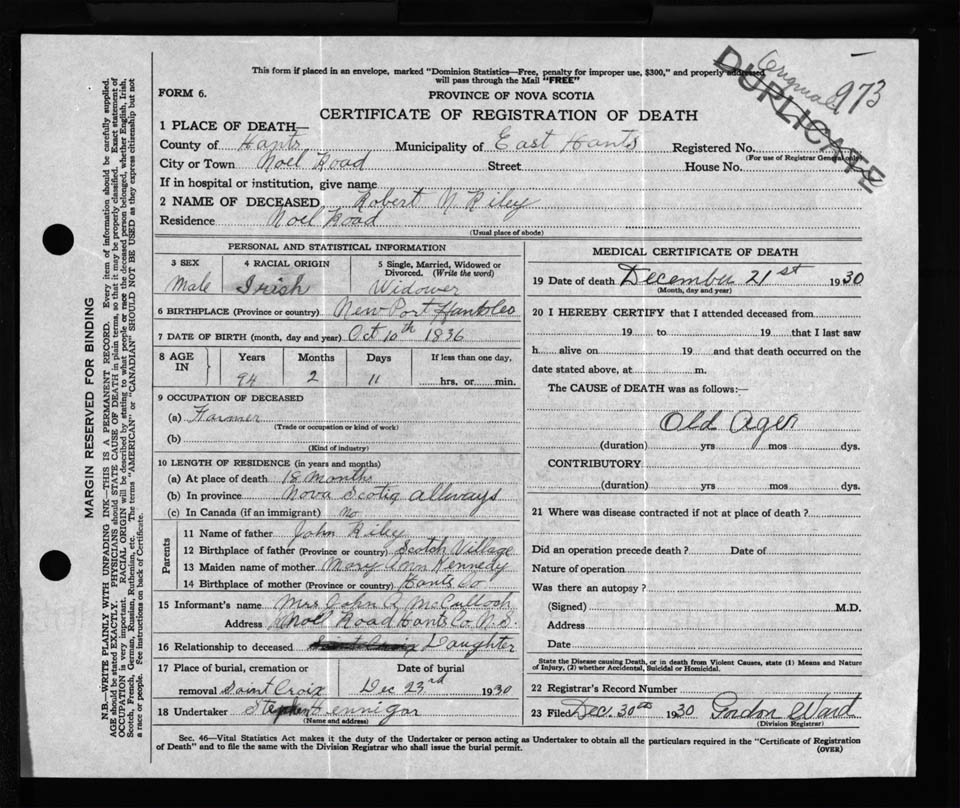 This form if placed in an envelope, marked "Dominion Statistics—Free, penalty for improper use, $300," and properly addressed
will pass through the Mail "FREE"
973
DUPLICATE
FORM 6.
PROVINCE OF NOVA SCOTIA
CERTIFICATE OF REGISTRATION OF DEATH
1 PLACE OF DEATH—
County of Hants Municipality of East Hants Registered No.
(For use of Registrar General only)
City or Town Noel Road Street House No.
If in hospital or institution, give name
2 NAME OF DECEASED Robert N Riley
Residence Noel Road
(Usual place of abode)
PERSONAL AND STATISTICAL INFORMATION
3 SEX 4 RACIAL ORIGIN 5 Single, Married, Widowed or
Divorced. (Write the word)
Male Irish Widower
6 BIRTHPLACE (Province or country) New Port Hants Co
7 DATE OF BIRTH (month, day and year) Oct 10th 1836
8 AGE
IN
Years Months Days If less than one day,
94 2 11 hrs. or min.
9 OCCUPATION OF DECEASED
(a) Farmer
(Trade or occupation or kind of work)
(b)
(Kind of industry)
10 LENGTH OF RESIDENCE (in years and months)
(a) At place of death 18 months
(b) In province Nova Scotia allways
(c) In Canada (if an immigrant) no
Parents
11 Name of father John Riley
12 Birthplace of father (Province or country) Scotch Village
13 Maiden name of mother Mary Ann Kennedy
14 Birthplace of mother (Province or country) Hants Co.
15 Informant's name Mrs John A McCulloch
Address Noel Road Hants Co. N.S.
16 Relationship to deceased Saint Croix Daughter
17 Place of burial, cremation or Date of burial
removal Saint Croix Dec 23rd 1930
18 Undertaker Stephen Fennigar
(Name and address)
MEDICAL CERTIFICATE OF DEATH
19 Date of death December 21st 1930
(Month, day and year)
20 I HEREBY CERTIFY that I attended deceased from
19 to 19 that I last saw
h alive on 19 and that death occurred on the
date stated above, at m.
The CAUSE of DEATH was as follows:—
Old Age
(duration) yrs mos dys.
CONTRIBUTORY
(duration) yrs mos dys.
21 Where was disease contracted if not at place of death?
Did an operation precede death? Date of
Nature of operation
Was there an autopsy?
(Signed) M.D.
Address
Date
State the Disease causing Death, or in death from Violent Causes, state (1) Means and Nature
of Injury, (2) whether Accidental, Suicidal or Homicidal.
22 Registrar's Record Number
23 Filed Dec. 30th 1930 Gordon Ward
(Division Registrar)
Sec. 46—Vital Statistics Act makes it the duty of the Undertaker or person acting as Undertaker to obtain all the particulars required in the "Certificate of Registration
of Death" and to file the same with the Division Registrar who shall issue the burial permit.
(OVER)
MARGIN RESERVED FOR BINDING
N.B.—WRITE PLAINLY WITH UNFADING INK—THIS IS A PERMANENT RECORD. Every item of information should be carefully supplied.
AGE should be stated EXACTLY. PHYSICIANS should STATE CAUSE OF DEATH in plain terms, so that it may be properly classified. Exact statement of
OCCUPATION is very important. RACIAL ORIGIN will be described by stating to what people or race the deceased person belonged, whether English, Irish,
Scotch, French, German, Russian, Ruthenian, etc. The terms "AMERICAN" or "CANADIAN" SHOULD NOT BE USED as they express citizenship but not
a race or people. See instructions on back of Certificate.